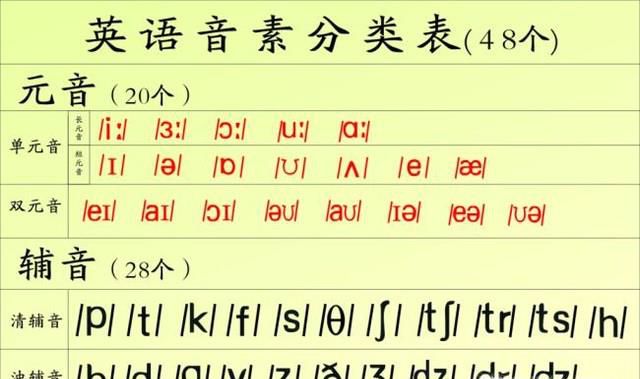 英语音素分类表(48个)
元音（20个）
单元音
长元音
/i:/ /ɜ:/ /ɔ:/ /u:/ /ɑ:/
短元音
/ɪ/ /ə/ /ɒ/ /ʊ/ /ʌ/ /e/ /æ/
双元音 /eɪ/ /aɪ/ /ɔɪ/ /əʊ/ /aʊ/ /ɪə/ /eə/ /ʊə/
辅音（28个）
清辅音 /p/ /t/ /k/ /f/ /s/ /θ/ /ʃ/ /tʃ/ /tr/ /ts/ /h/
浊辅音 /b/ /d/ /g/ /v/ /z/ /ð/ /ʒ/ /dʒ/ /dr/ /dz/